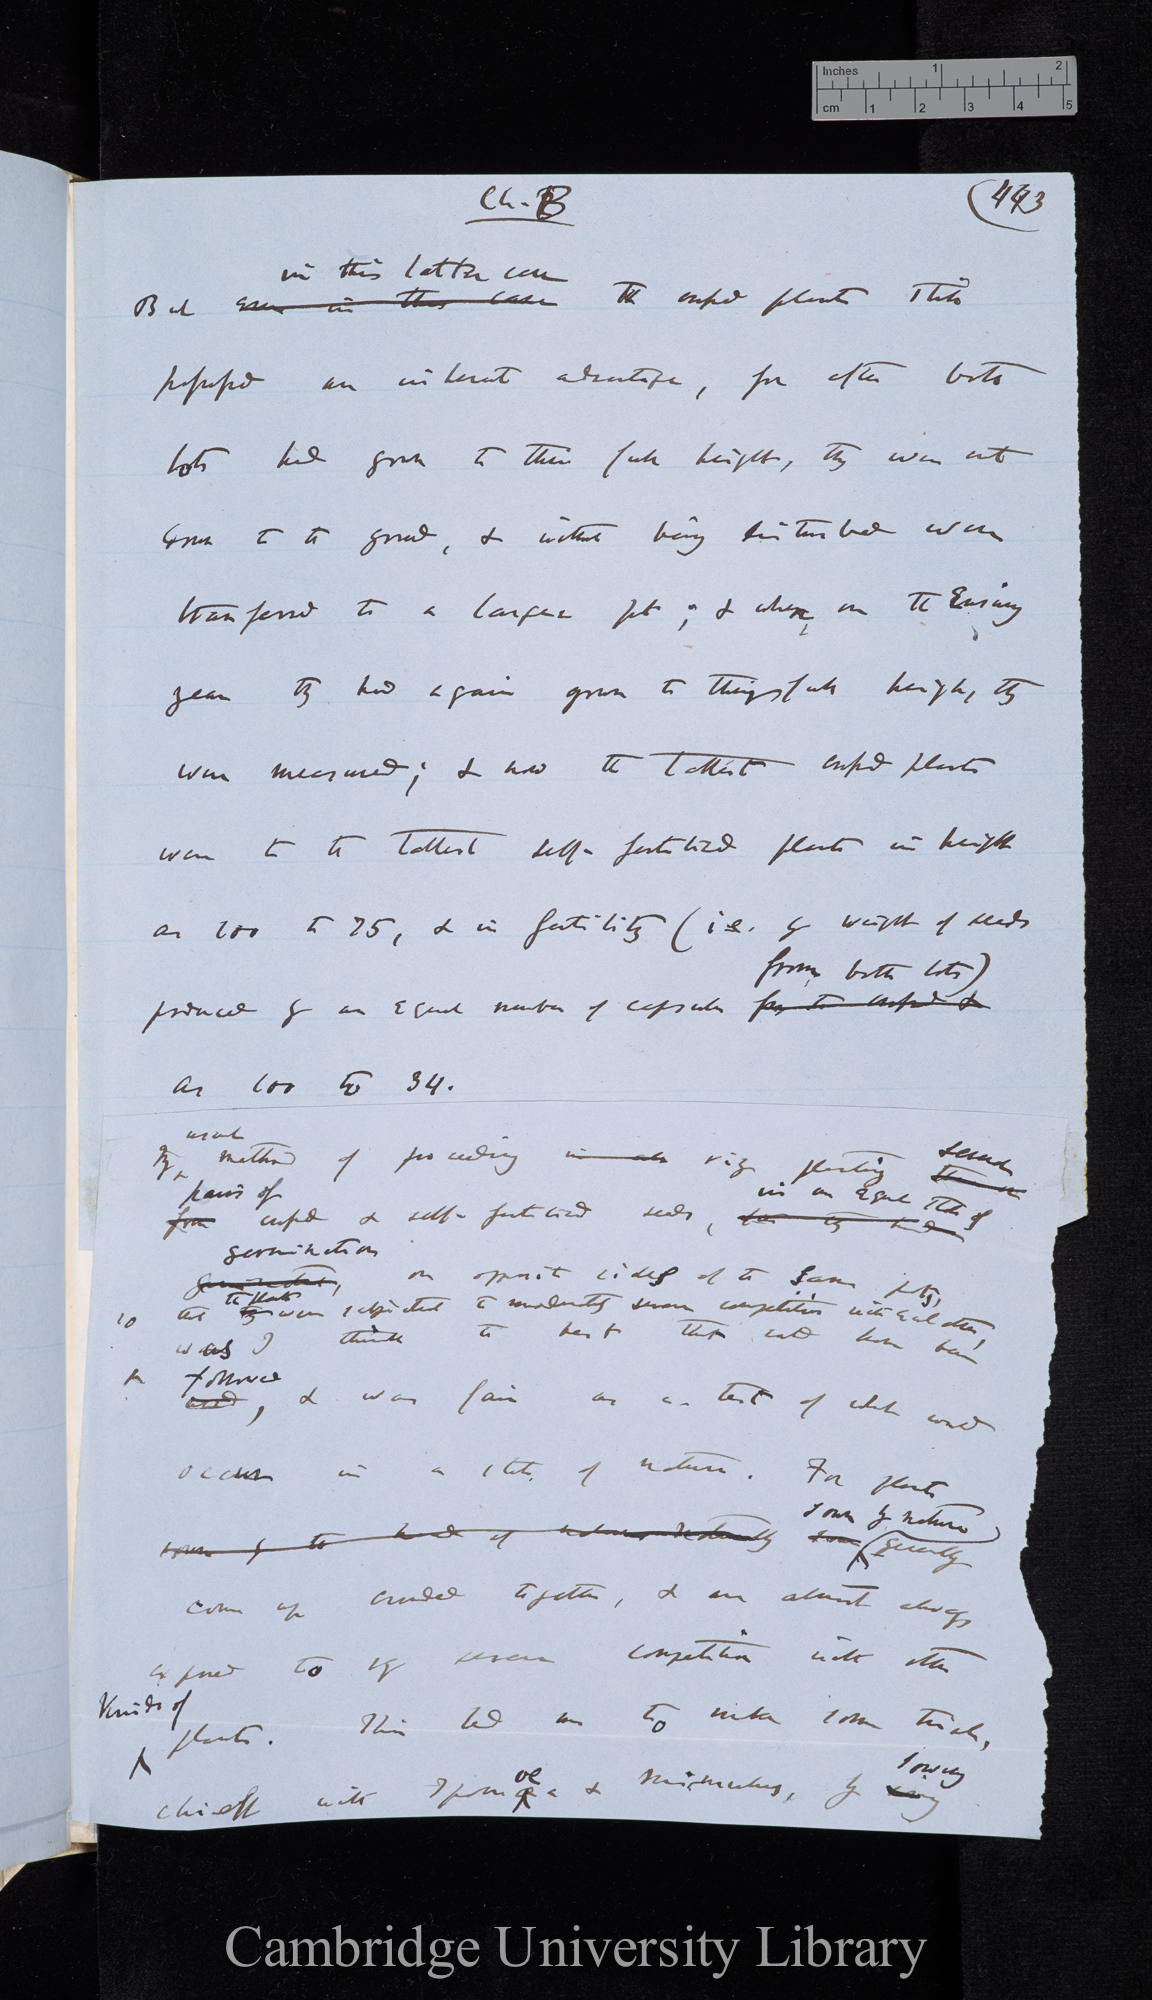 Inches 1 2
cm 1 2 3 4 5
Ch. B
(443
in this latter case
But even in this case the crossed plants still
possessed an inherent advantage, for after both
lots had grown to their full height, they were cut
down to the ground, & without being disturbed were
transferred to a larger pot; & when, on the Ensuing
year they had again grown to their full height, they
were measured; & now the tallest crossed plants
were to the tallest self-fertilized plants in height
as 100 to 75, & in fertility (i.e. by weight of seeds
from both lots)
produced by an Equal number of capsules from the crossed &
as 100 to 34.
usual
My method of proceeding viz planting several
pairs of in an Equal state of
from crossed & self-fertilised seeds,
germination
germination, on opposite sides of the same pots,
the plants
so that they were subjected to moderately severe competition with each other,
was I think the best that could have been
followed
used, & was fair as a test of what would
occur in a state of nature. For plants
sown by nature
sown by the hand of nature generally
come up crowded together, & are almost always
exposed to very severe competition with other
kinds of
plants. This led me to make some trials,
sowing
chiefly with Ipomoea & Mimulus, by
Cambridge University Library